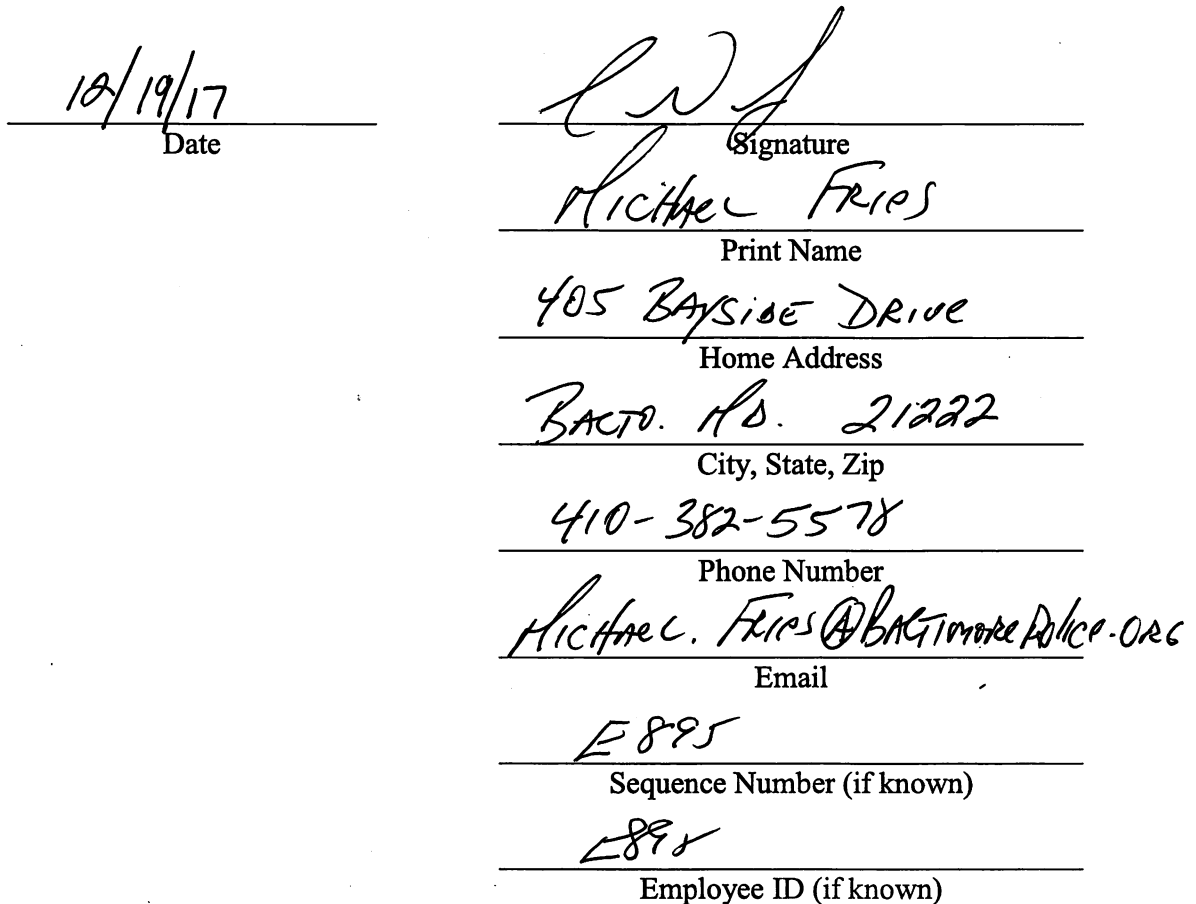 12/19/17
Date
Signature
MICHAEL FRIES
Print Name
405 BAYSIDE DRIVE
Home Address
BALTO. MD. 21222
City, State, Zip
410-382-5578
Phone Number
MICHAEL.FRIES@BALTIMOREPOLICE.ORG
Email
E895
Sequence Number (if known)
Employee ID (if known)